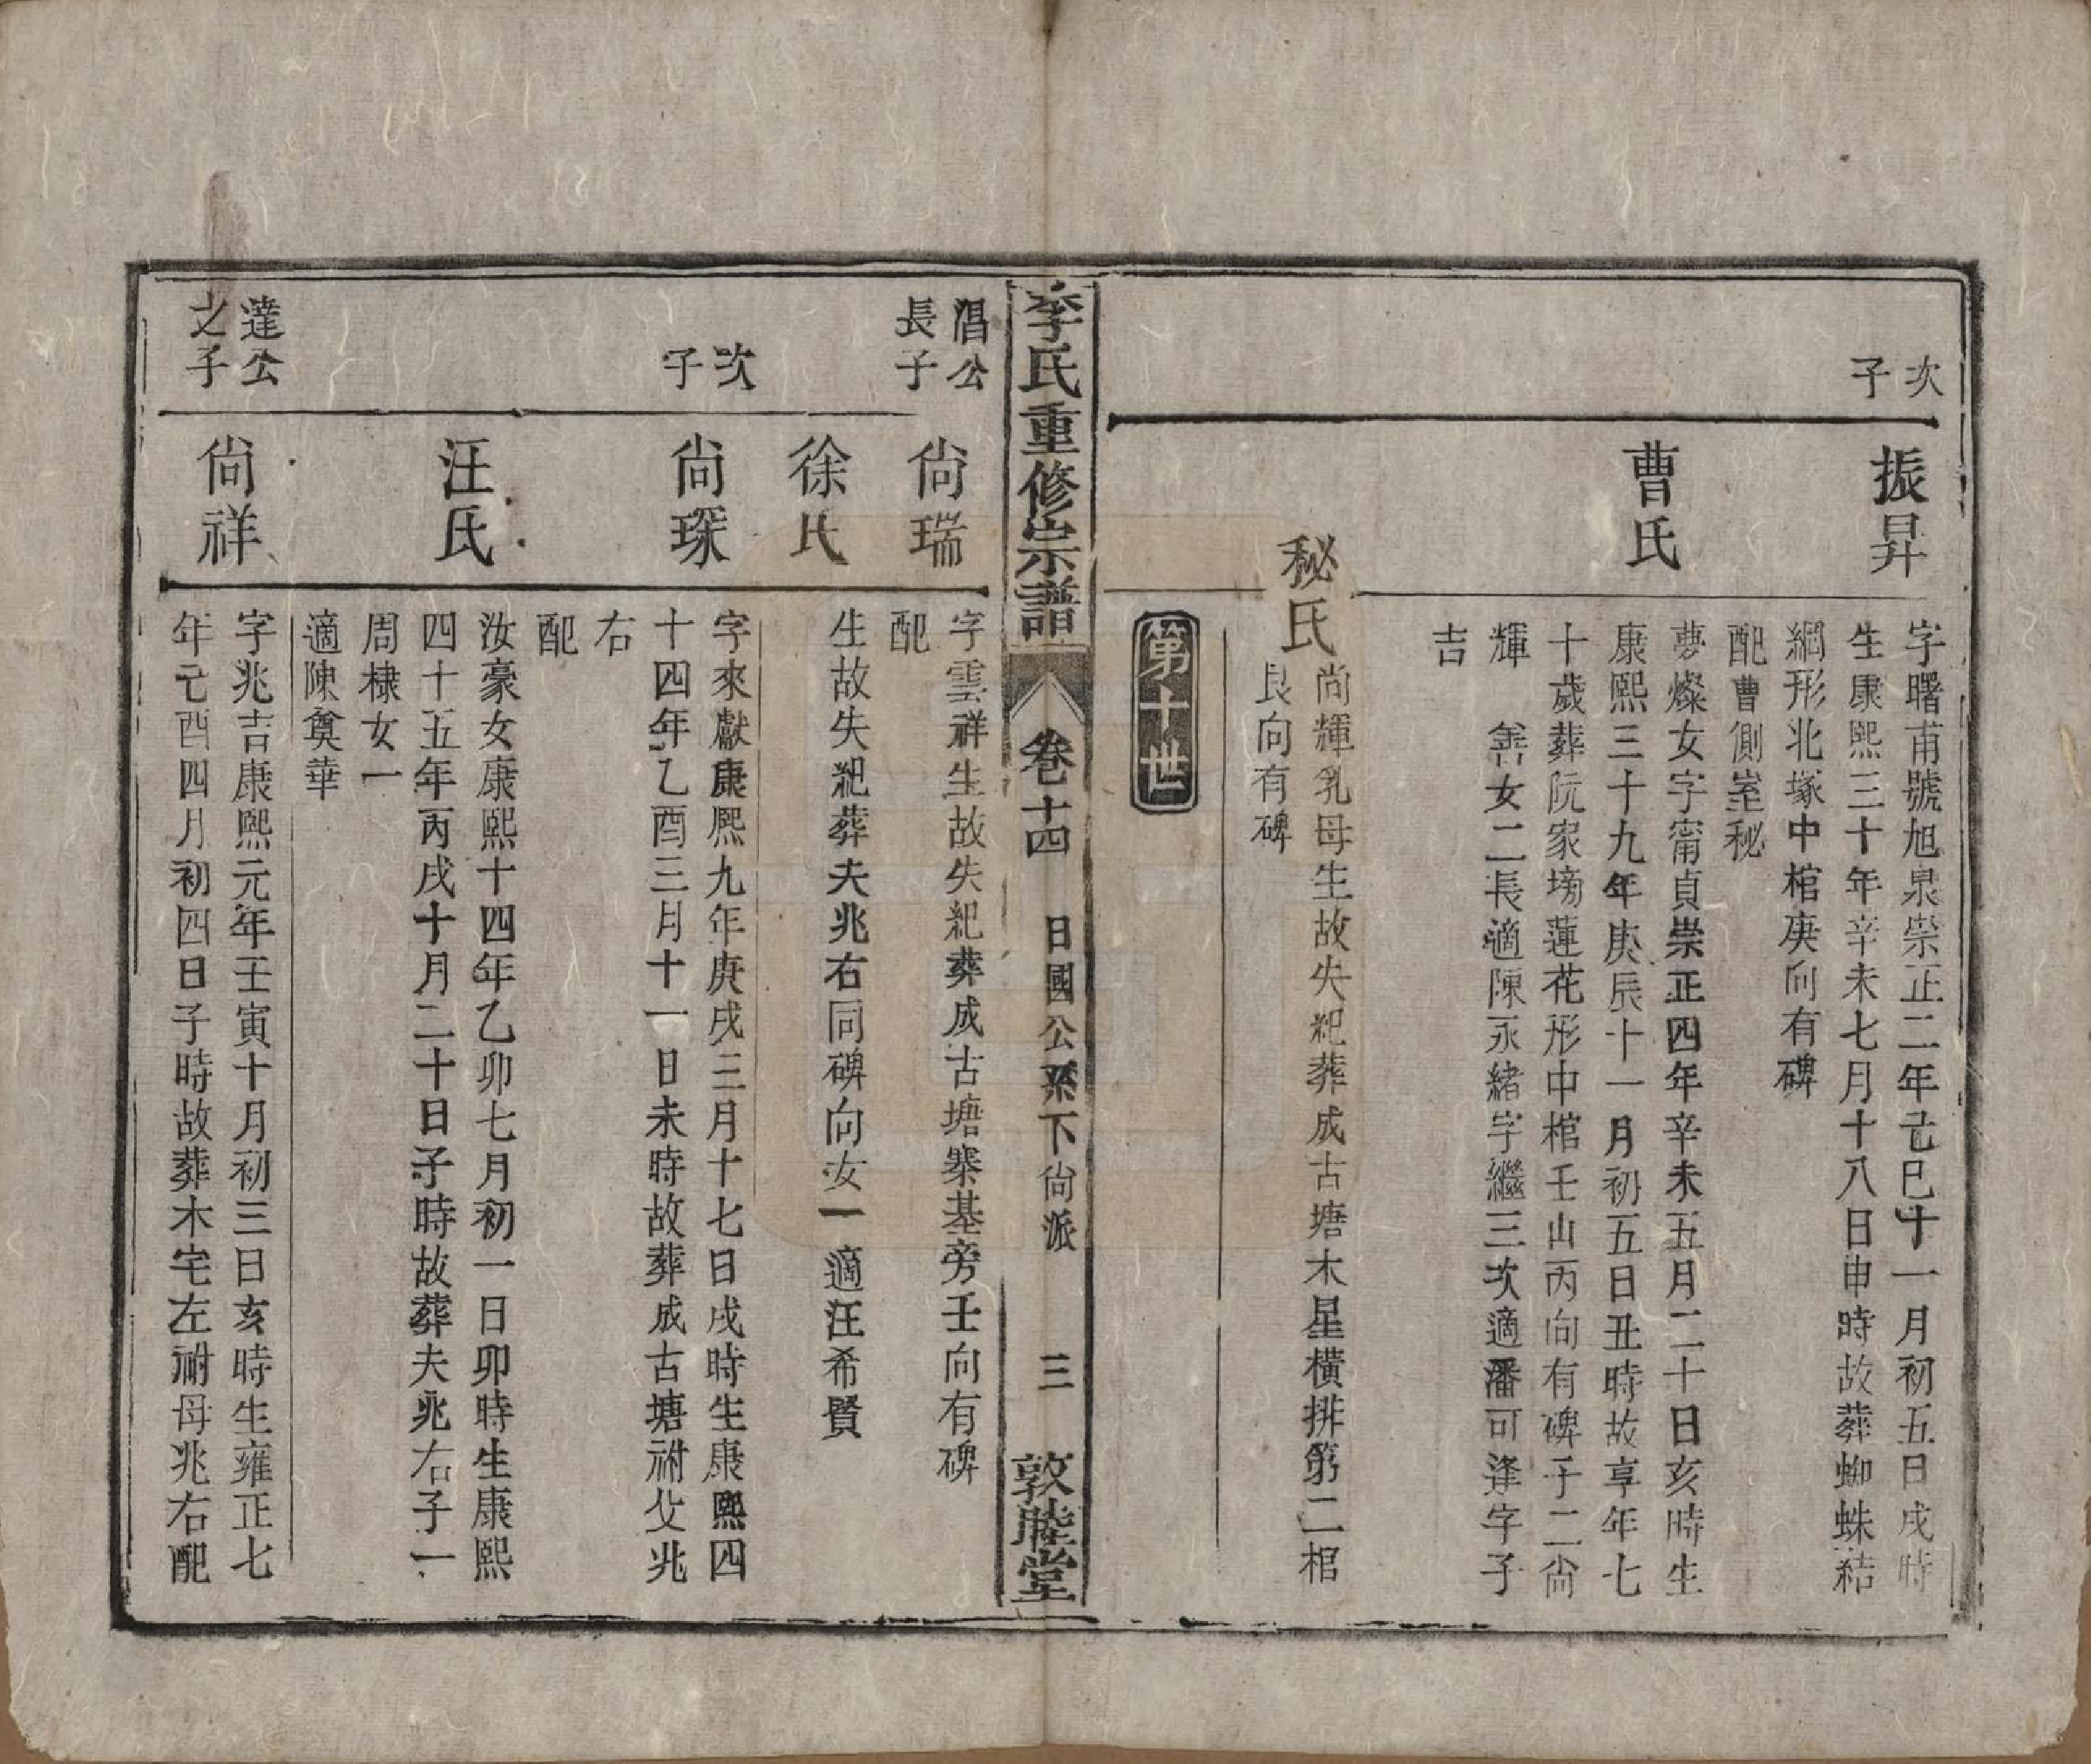 次
子
振昇
字曙甫號旭泉崇正二年己巳十一月初五日戌時
生康熙三十年辛未七月十八日申時故葬蜘蛛結
網形北塚中棺庚向有碑
配曹側室秘
曹氏
夢燦女字甯貞崇正四年辛未五月二十日亥時生
康熙三十九年庚辰十一月初五日丑時故享年七
十歲葬阮家塝蓮花形中棺壬山丙向有碑子二尙
輝　善女二長適陳永緒字繼三次適潘可逢字子
吉
秘氏
尚輝乳母生故失紀葬成古塘木星橫排第二棺
艮向有碑
第十世
李氏重修宗譜　卷十四　日國公系下尙派　三　敦睦堂
淐公
長子
尙瑞
字雲祥生故失紀葬成古塘寨基旁壬向有碑
配
徐氏
生故失紀葬夫兆右同碑向女一適汪希賢
次
子
尙琛
字來獻康熙九年庚戌三月十七日戌時生康熙四
十四年乙酉三月十一日未時故葬成古塘祔父兆
右
配
汪氏
汝豪女康熙十四年乙卯七月初一日卯時生康熙
四十五年丙戌十月二十日子時故葬夫兆右子一
周棣女一
適陳奠華
達公
之子
尙祥
字兆吉康熙元年壬寅十月初三日亥時生雍正七
年己酉四月初四日子時故葬木宅左祔母兆右配